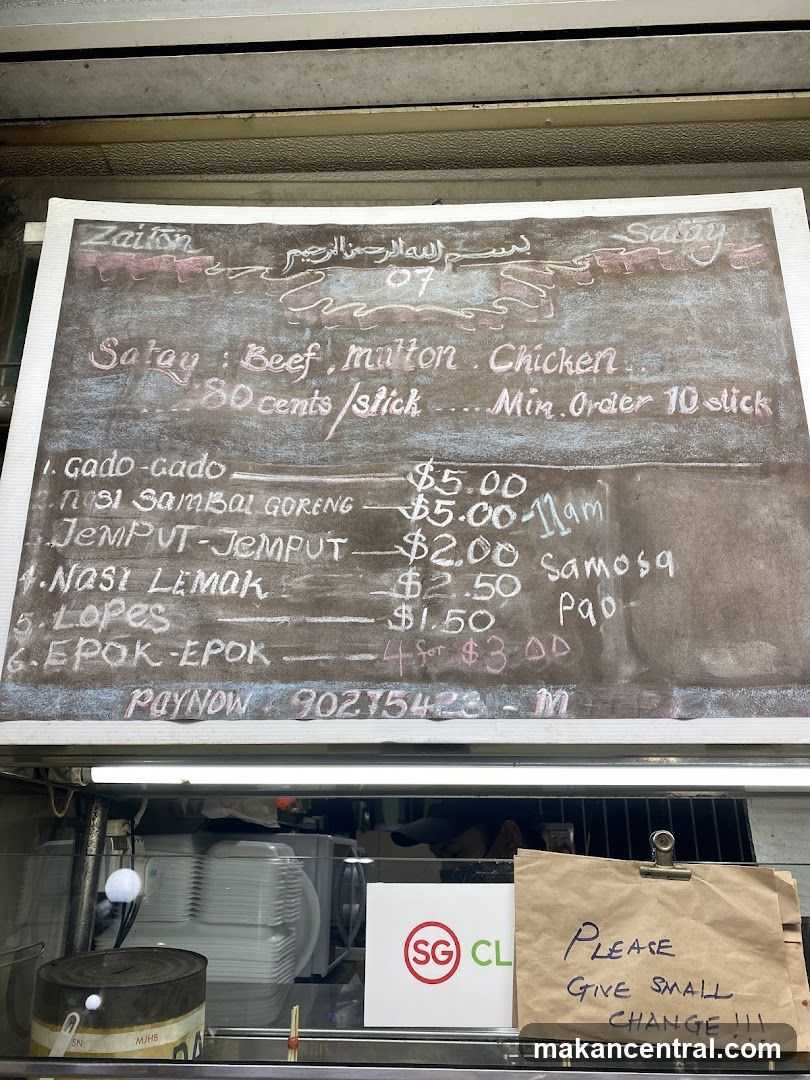 Zaiton بسم الله الرحمن الرحيم Satay
07
Satay : Beef . mutton . Chicken ..
.... 80 cents/stick ..... Min. Order 10 stick
1. Gado-Gado $5.00
2. Nasi Sambal GORENG $5.00 - 11am
3. JEMPUT-JEMPUT $2.00
4. NASI LEMAK $2.50
Samosa
5. LOPES $1.50
Pao
6. EPOK-EPOK 4 for $3.00
PAYNOW . 90275423 - M
SG CL
PLEASE
GIVE SMALL
CHANGE !!!
SN:
MJHB
makancentral.com